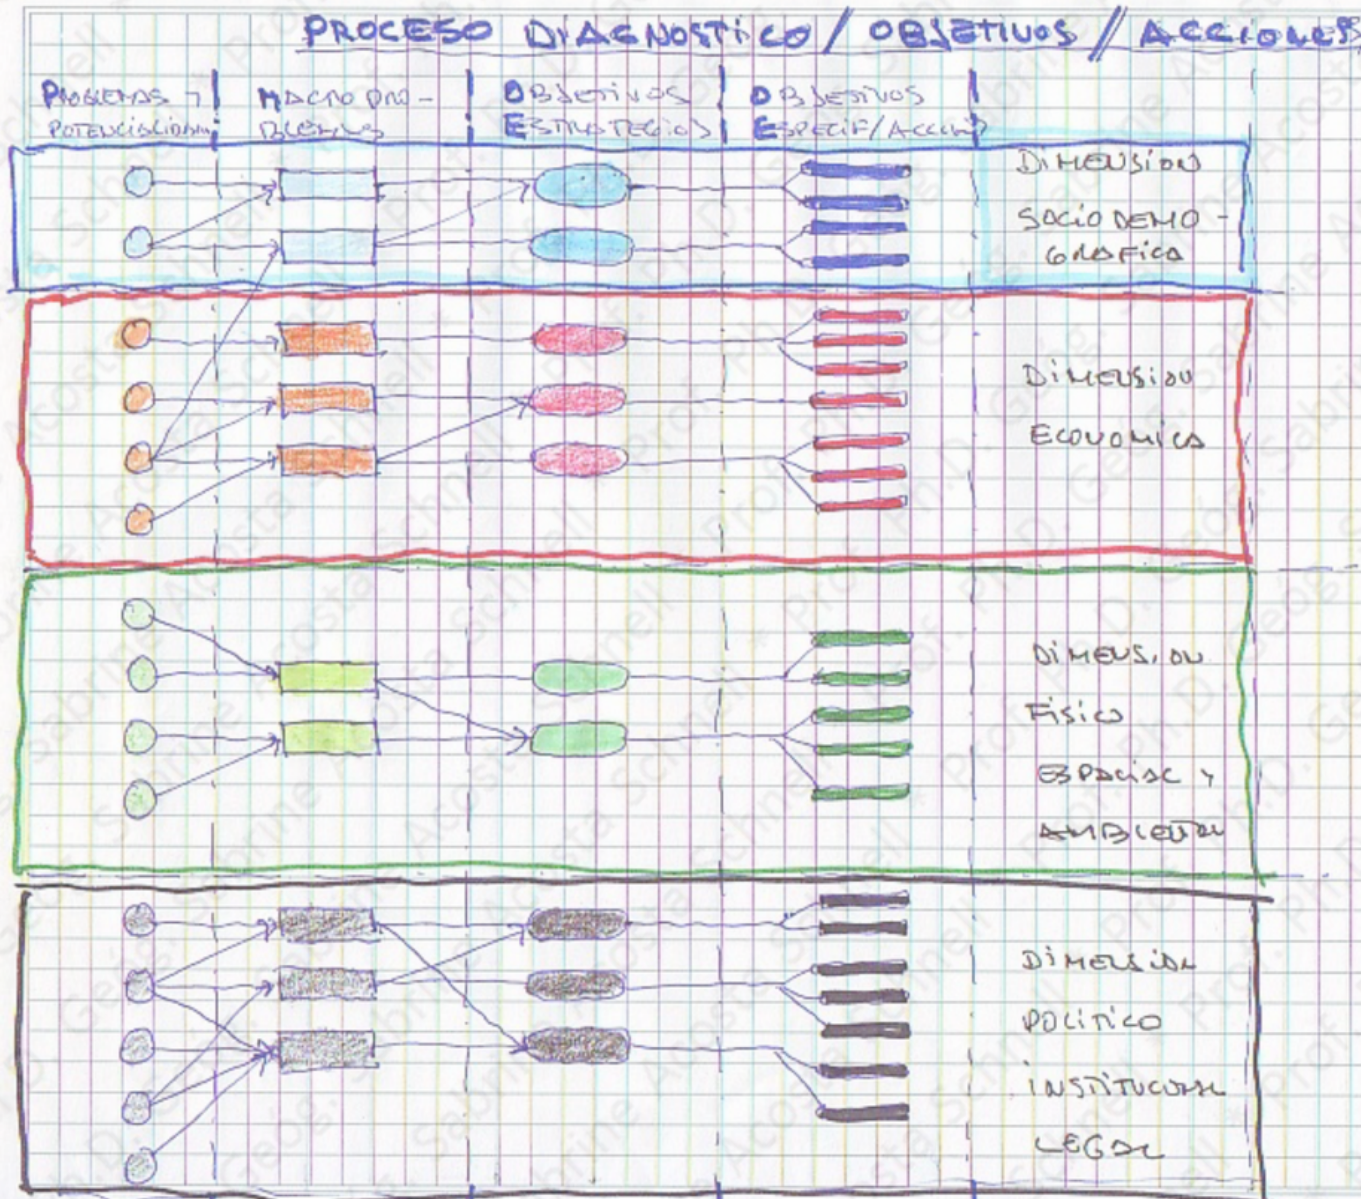 PROCESO DIAGNOSTICO / OBJETIVOS // ACCIONES
PROBLEMAS Y
POTENCIALIDAD
MACRO PRO-
BLEMAS
OBJETIVOS
ESTRATEGICOS
OBJETIVOS
ESPECIF/ACCION
DIMENSION
SOCIO DEMO-
GRAFICA
DIMENSION
ECONOMICA
DIMENSION
FISICO
ESPACIAL Y
AMBIENTAL
DIMENSION
POLITICO
INSTITUCIONAL
LEGAL
Geóg. Sabrine Acosta Schnell * Prof. Ph.D.